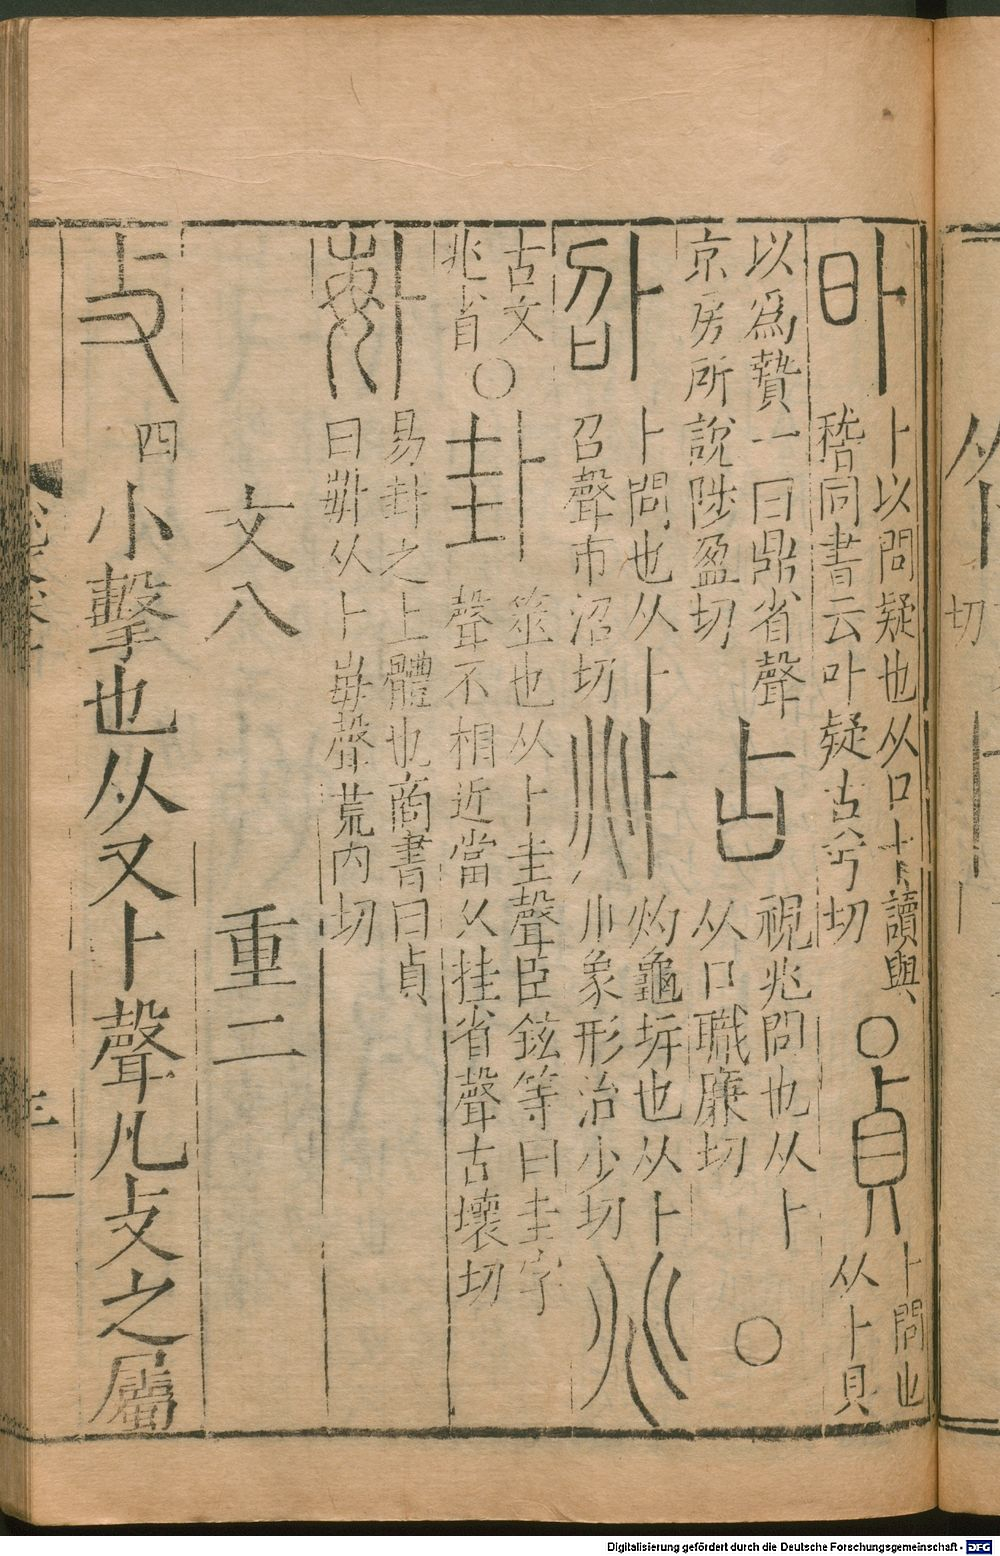 卟
卜以問疑也从口卜讀與
稽同書云卟疑古兮切
○
貞
卜問也
从卜貝
以爲贄一曰鼎省聲
京房所說陟盈切
占
視兆問也从卜
从口職廉切
○
卲
卜問也从卜
召聲市沼切
𠧞
灼龜坼也从卜
兆象形治少切
兆
古文
兆省
○
卦
筮也从卜圭聲臣鉉等曰圭字
聲不相近當从挂省聲古壞切
易卦之上體也商書曰貞
曰𠧩从卜每聲荒内切
文八
重二
攴
四
小擊也从又卜聲凡攴之屬
切
Digitalisierung gefördert durch die Deutsche Forschungsgemeinschaft - DFG